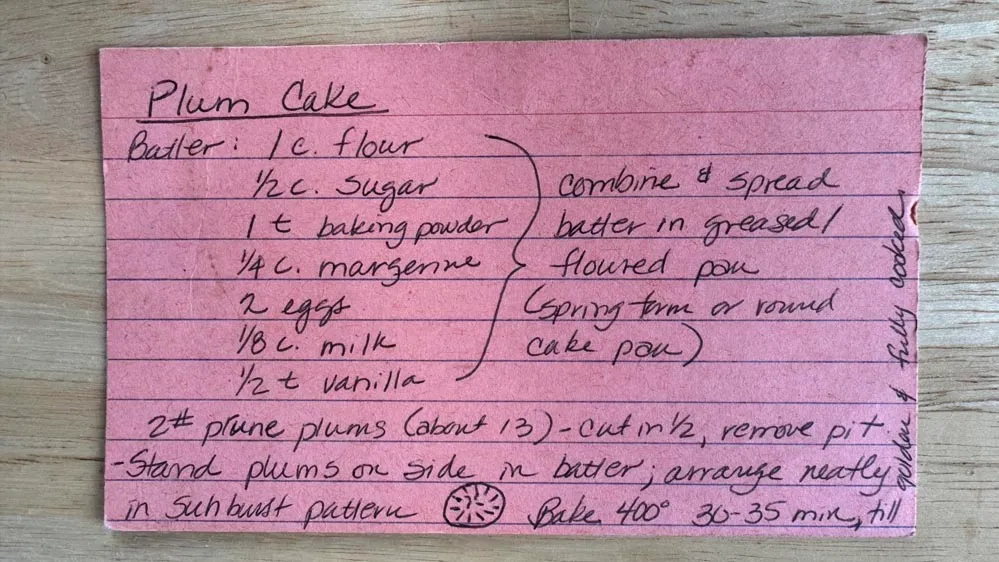 Plum Cake
Batter: 1 c. flour
1/2 c. sugar
1 t baking powder
1/4 c. margerine
2 eggs
1/8 c. milk
1/2 t vanilla
combine & spread
batter in greased/
floured pan
(spring form or round
cake pan)
2# prune plums (about 13) - cut in 1/2, remove pit.
- Stand plums on side in batter; arrange neatly
in sunburst pattern Bake 400° 30-35 min, till
golden & fully cooked